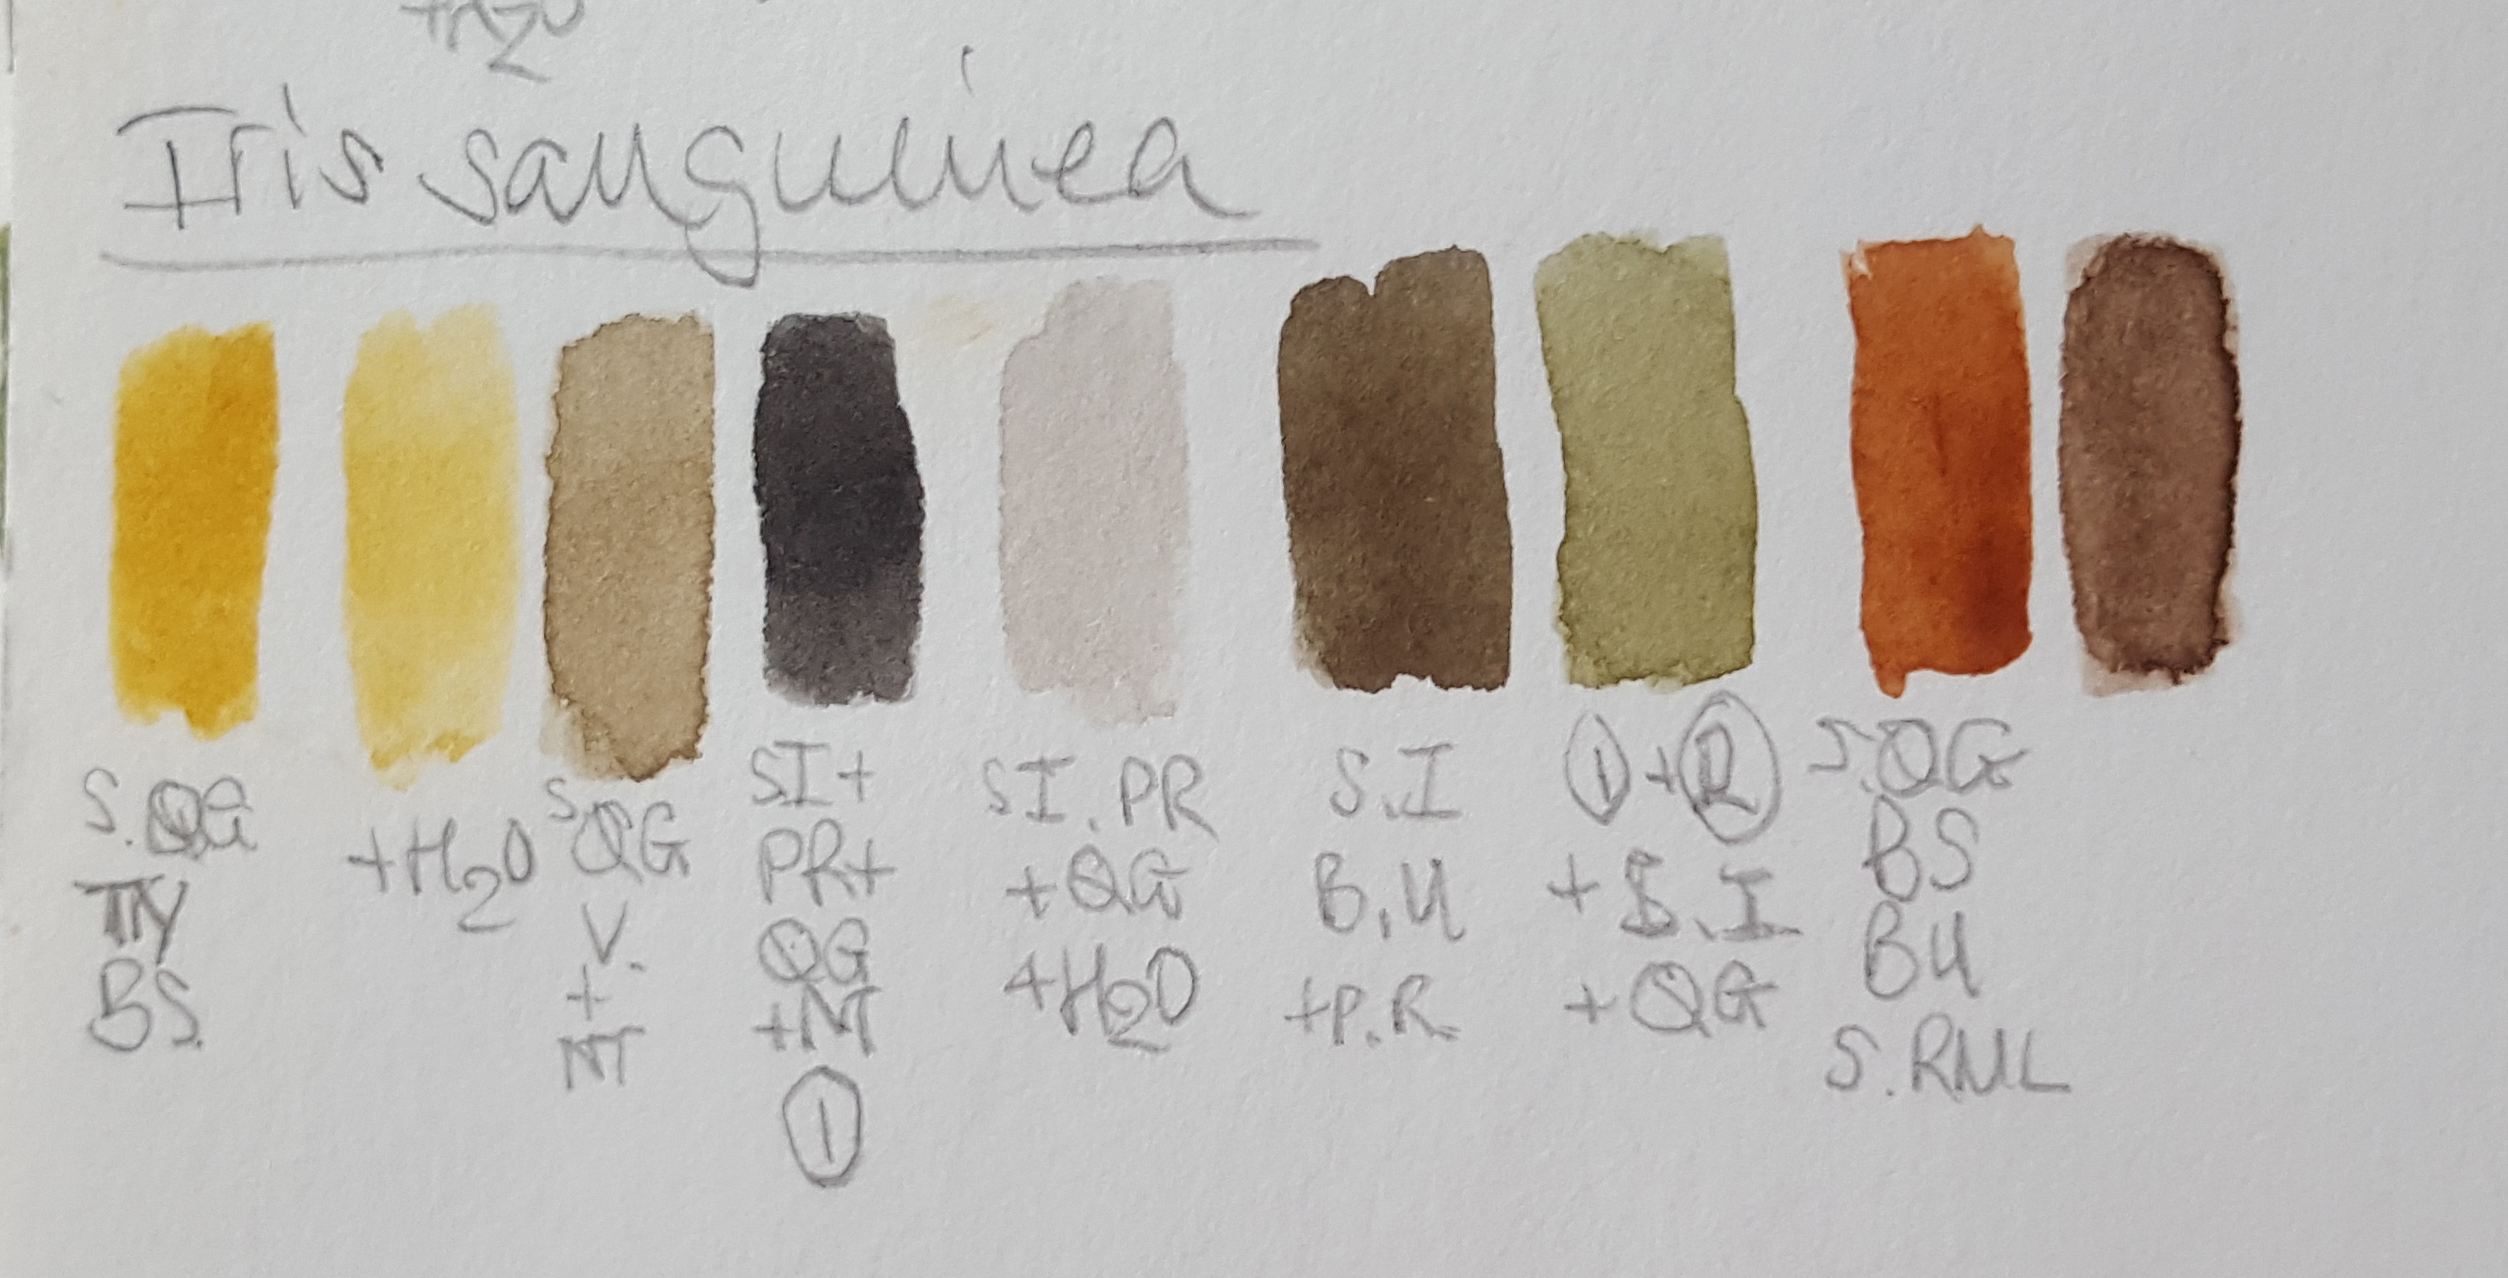 +H2O
Iris sanguinea
S.QG
TY
BS.
+H2O
S QG
V.
+
NT
SI+
PR+
QG
+NT
1
SI.PR
+QG
+H2O
S.I
B.U
+P.R.
1+R
+S.I.
+QG
S.QG
BS
BU
S.RML